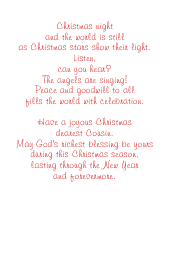 Christmas night
and the world is still
as Christmas stars show their light.
Listen,
can you hear?
The angels are singing!
Peace and goodwill to all
fills the world with celebration.

Have a joyous Christmas
dearest Cousin.
May God's richest blessing be yours
during this Christmas season,
lasting through the New Year
and forevermore.